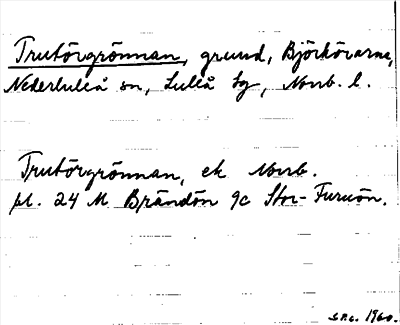 Trutörgrönnan, grund, Björkörarne,
Nederluleå sn, Luleå tg, Norrb. l.
Trutörgrönnan, ek Norrb.
pl. 24 M Brändön 9c Stor-Furuön.
1960.